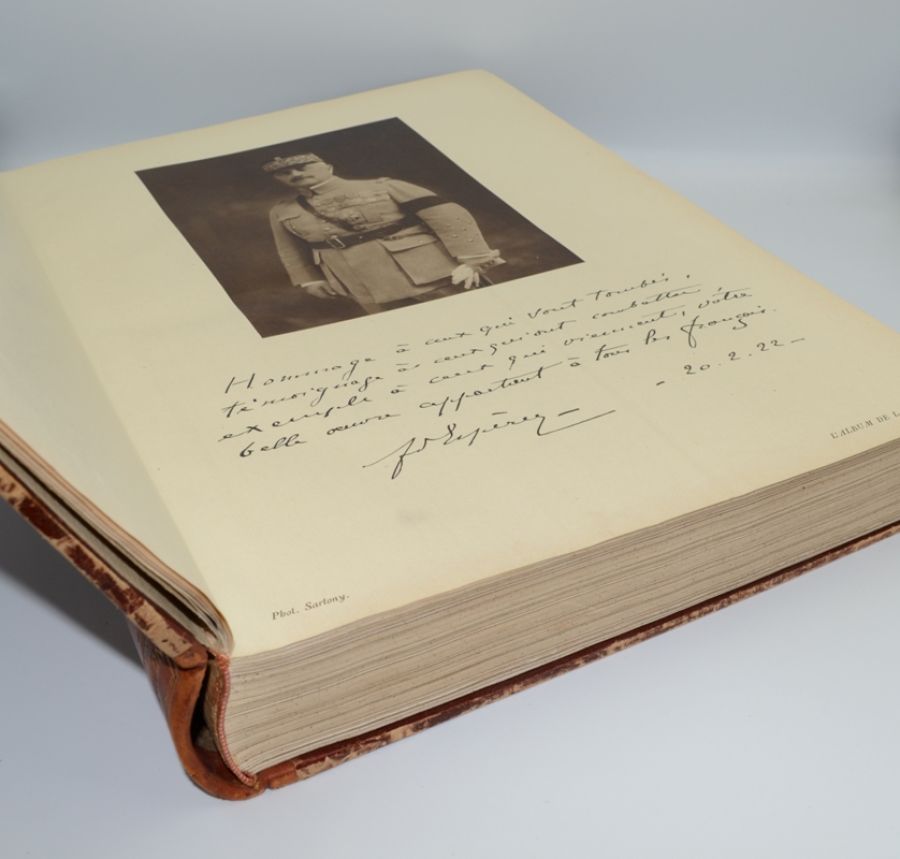 Hommage à ceux qui sont tombés,
témoignage à ceux qui ont combattu
exemple à ceux qui viennent, votre
belle œuvre appartient à tous les français.
- 20.2.22 -
L'ALBUM DE L
Phot. Sartony.